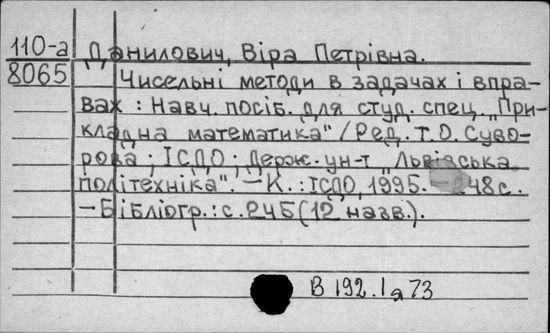 110-а Данилович, Віра Петрівна.
8065 Чисельні методи в задачах і впра-
вах : Навч. посіб. для студ. спец. „При-
кладна математика" / Ред. Т.О. Суво-
рова ; ІСДО ; Держ. ун-т „Львівська
політехніка". – К. : ІСДО, 1995. – 248 с.
– Бібліогр.: с. 245 (12 назв.).
В 192.1 я 73